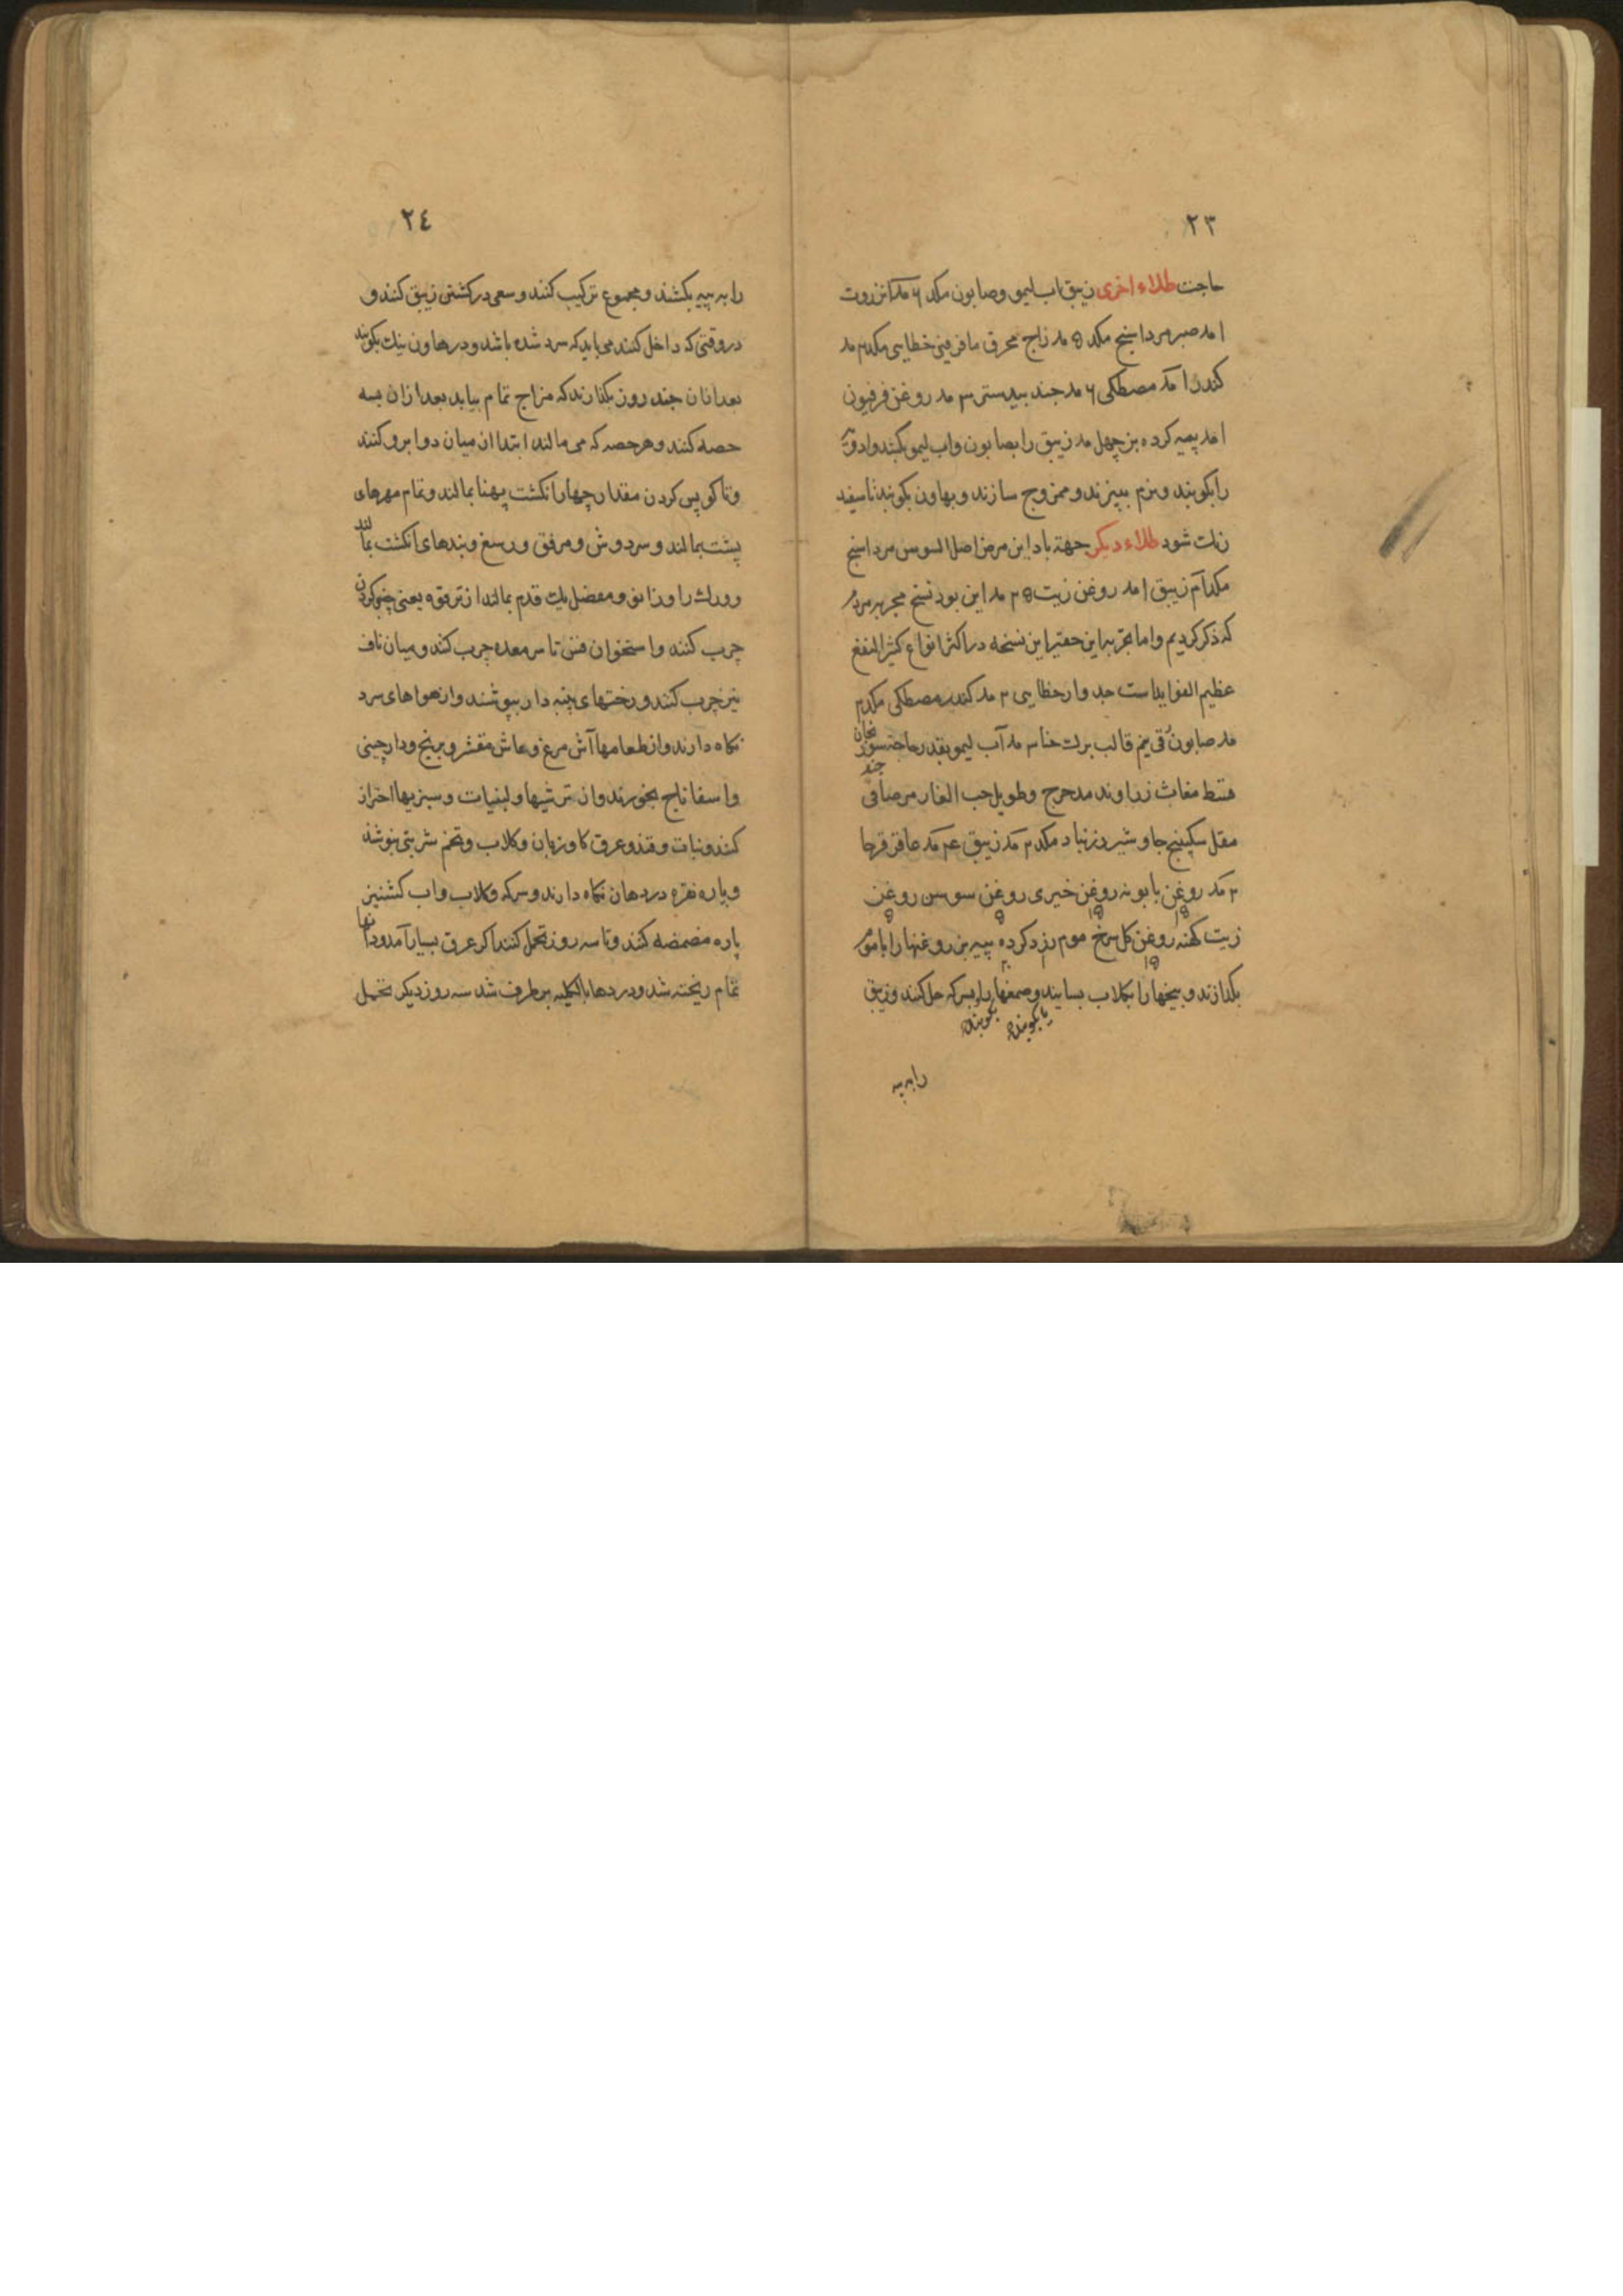 ٢٣
حاجت طلاء اخرى زيبق اب ليمو وصابون مكد ٦ مد انزروت
ا مد صبر مرداسنج مكد ٥ مد زاج محرق مافرفين خطايى مكد ٣ مد
كندر ا مد مصطكى ٦ مد جند بيدستر ٣ مد روغن فرفيون
ا مد پيه كرده بز چهل مد زيبق را بصابون واب ليمو بكشند وادويه
را بكوبند ونرم ببيزند وممزوج سازند وبهاون بكوبند تا سفيد
رنك شود طلاء ديكر جهة باد اين مرض اصل السوس مرداسنج
مكد ٣ زيبق ا مد روغن زيت ٣٥ مد اين بود نسخ مجربه مردم
كه ذكر كرديم واما تجربه اين حقير اين نسخه در اكثر انواع كثير النفع
عظيم الفوايد است جدوار خطايى ٣ مد كندر مصطكى مكد ٣
مد صابون رقى نيم قالب برك حنا ٣ مد آب ليمو بقدر حاجة سورنجان
قسط مغاث زراوند مدحرج وطويل حب الغار مر صافى جند
مقل سكبينج جاوشير زرنباد مكد ٣ مد زيبق ٤٠ مد عاقرقرحا
٣ مد روغن بابونه روغن خيرى روغن سوسن روغن
زيت كهنه روغن كل سرخ موم زرد كرده پيه بز روغنها را با موم
بكدازند وبيخها را بكلاب بسايند وصمغها را بسركه حل كنند وزيبق
يا بكوبند بكوبند
را به پيه
٢٤
را به پيه بكشند ومجموع تركيب كنند وسعى در كشتن زيبق كنند و
در وقتى كه داخل كنند مى بايد كه سرد شده باشد ودر هاون نيك بكوبند
بعد از ان چند روز بكذارند كه مزاج تمام بيابد بعد از ان بسه
حصه كنند وهر حصه كه مى مالند ابتدا از ميان دو ابرو كنند
وتا كو پس كردن مقدار چهار انكشت پهنا بمالند وتمام مهرهاى
پشت بمالند وسر دوش ومرفق ورسغ وبندهاى انكشت بمالند
وورك را وزانو ومفصل يك قدم بمالند از ترقوه يعنى چنبر كردن
چرب كنند واستخوان قس تا سر معده چرب كنند وميان ناف
نيز چرب كنند ورختهاى پنبه دار بپوشند واز هواهاى سرد
نكاه دارند واز طعامها آش مرغ وماش مقشر وبرنج ودارچينى
واسفاناج بخورند واز ترشيها ولبنيات وسبزيها احتراز
كنند ونبات وقند وعرق كاوزبان وكلاب وتخم شربتى بنوشند
وپاره نقره در دهان نكاه دارند وسركه وكلاب واب كشنيز
پاره مضمضه كنند وتا سه روز تحمل كنند اكر عرق بسيار آمد ودانها
تمام ريخته شد ودردها بالكليه برطرف شد سه روز ديكر تحمل